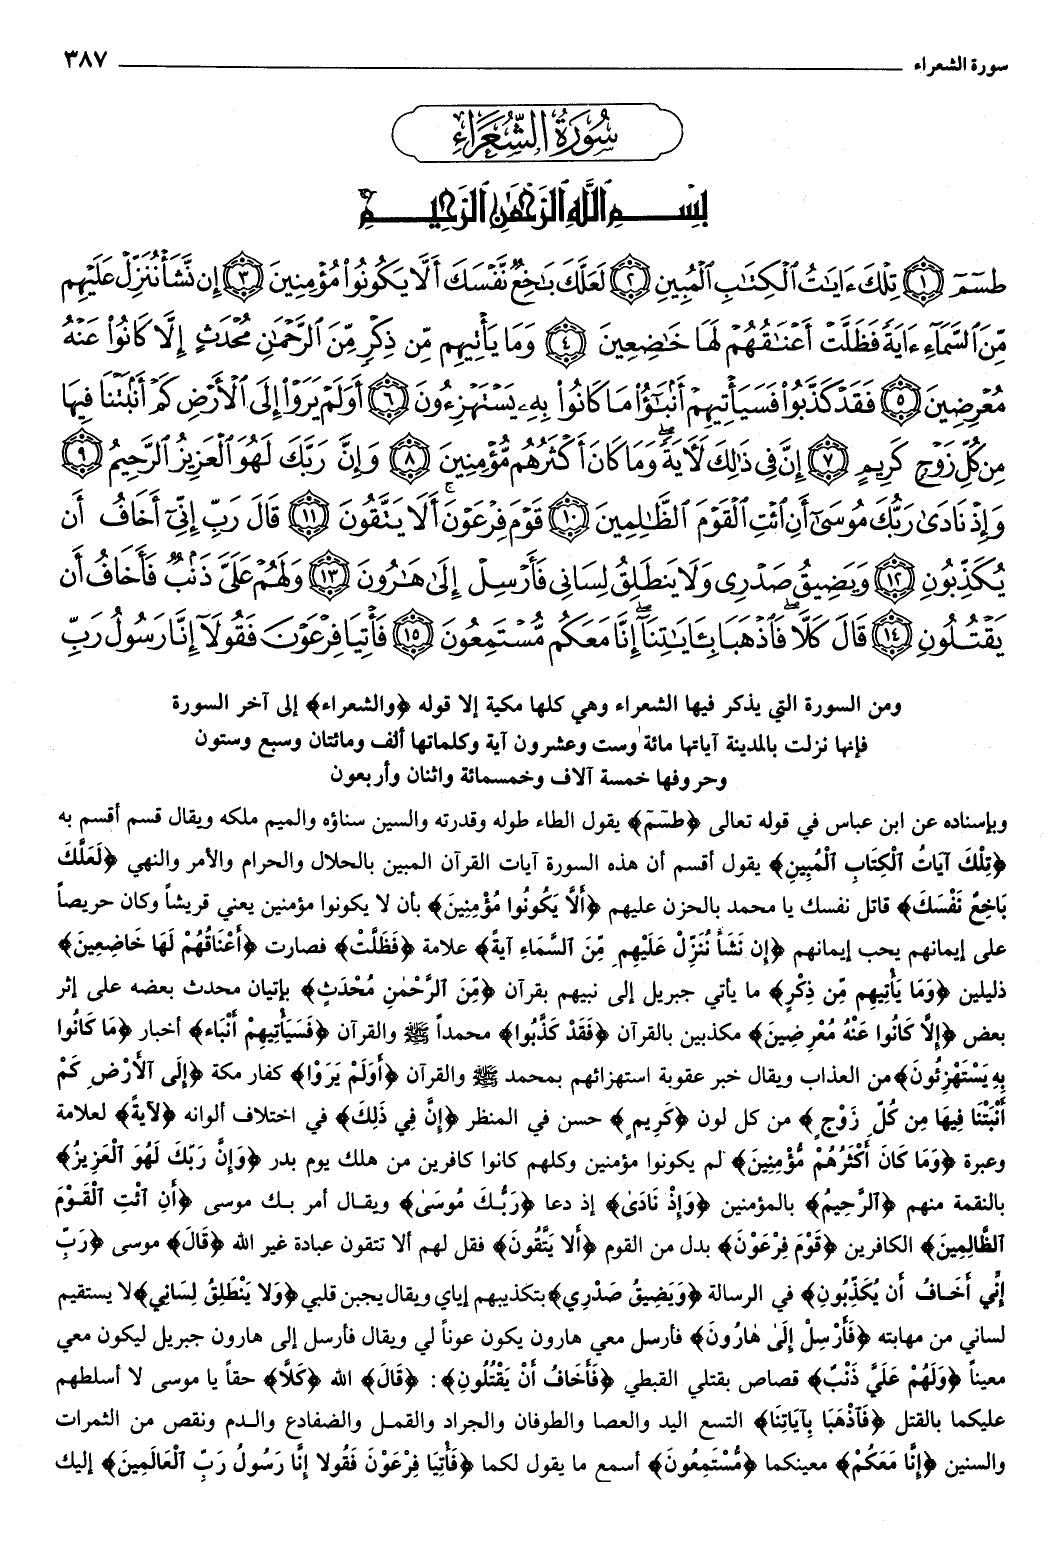 سورة الشعراء ٣٨٧
سُورَةُ الشُّعَرَاءِ
بِسْمِ اللَّهِ الرَّحْمَٰنِ الرَّحِيمِ
طسٓمٓ ١ تِلْكَ ءَايَٰتُ ٱلْكِتَٰبِ ٱلْمُبِينِ ٢ لَعَلَّكَ بَٰخِعٌ نَّفْسَكَ أَلَّا يَكُونُوا۟ مُؤْمِنِينَ ٣ إِن نَّشَأْ نُنَزِّلْ عَلَيْهِم
مِّنَ ٱلسَّمَآءِ ءَايَةً فَظَلَّتْ أَعْنَٰقُهُمْ لَهَا خَٰضِعِينَ ٤ وَمَا يَأْتِيهِم مِّن ذِكْرٍ مِّنَ ٱلرَّحْمَٰنِ مُحْدَثٍ إِلَّا كَانُوا۟ عَنْهُ
مُعْرِضِينَ ٥ فَقَدْ كَذَّبُوا۟ فَسَيَأْتِيهِمْ أَنۢبَٰٓؤُا۟ مَا كَانُوا۟ بِهِۦ يَسْتَهْزِءُونَ ٦ أَوَلَمْ يَرَوْا۟ إِلَى ٱلْأَرْضِ كَمْ أَنۢبَتْنَا فِيهَا
مِن كُلِّ زَوْجٍ كَرِيمٍ ٧ إِنَّ فِى ذَٰلِكَ لَءَايَةً ۖ وَمَا كَانَ أَكْثَرُهُم مُّؤْمِنِينَ ٨ وَإِنَّ رَبَّكَ لَهُوَ ٱلْعَزِيزُ ٱلرَّحِيمُ ٩
وَإِذْ نَادَىٰ رَبُّكَ مُوسَىٰٓ أَنِ ٱئْتِ ٱلْقَوْمَ ٱلظَّٰلِمِينَ ١٠ قَوْمَ فِرْعَوْنَ ۚ أَلَا يَتَّقُونَ ١١ قَالَ رَبِّ إِنِّىٓ أَخَافُ أَن
يُكَذِّبُونِ ١٢ وَيَضِيقُ صَدْرِى وَلَا يَنطَلِقُ لِسَانِى فَأَرْسِلْ إِلَىٰ هَٰرُونَ ١٣ وَلَهُمْ عَلَىَّ ذَنۢبٌ فَأَخَافُ أَن
يَقْتُلُونِ ١٤ قَالَ كَلَّا ۖ فَٱذْهَبَا بِـَٔايَٰتِنَآ ۖ إِنَّا مَعَكُم مُّسْتَمِعُونَ ١٥ فَأْتِيَا فِرْعَوْنَ فَقُولَآ إِنَّا رَسُولُ رَبِّ
ومن السورة التي يذكر فيها الشعراء وهي كلها مكية إلا قوله ﴿والشعراء﴾ إلى آخر السورة
فإنها نزلت بالمدينة آياتها مائة وست وعشرون آية وكلماتها ألف ومائتان وسبع وستون
وحروفها خمسة آلاف وخمسمائة واثنان وأربعون
وبإسناده عن ابن عباس في قوله تعالى ﴿طسٓمٓ﴾ يقول الطاء طوله وقدرته والسين سناؤه والميم ملكه ويقال قسم أقسم به
﴿تِلْكَ آيَاتُ ٱلْكِتَابِ ٱلْمُبِينِ﴾ يقول أقسم أن هذه السورة آيات القرآن المبين بالحلال والحرام والأمر والنهي ﴿لَعَلَّكَ
بَاخِعٌ نَفْسَكَ﴾ قاتل نفسك يا محمد بالحزن عليهم ﴿أَلَّا يَكُونُوا مُؤْمِنِينَ﴾ بأن لا يكونوا مؤمنين يعني قريشاً وكان حريصاً
على إيمانهم يحب إيمانهم ﴿إِن نَشَأْ نُنَزِّلْ عَلَيْهِم مِّنَ ٱلسَّمَاءِ آيَةً﴾ علامة ﴿فَظَلَّتْ﴾ فصارت ﴿أَعْنَاقُهُمْ لَهَا خَاضِعِينَ﴾
ذليلين ﴿وَمَا يَأْتِيهِم مِّن ذِكْرٍ﴾ ما يأتي جبريل إلى نبيهم بقرآن ﴿مِّنَ ٱلرَّحْمٰنِ مُحْدَثٍ﴾ بإتيان محدث بعضه على إثر
بعض ﴿إِلَّا كَانُوا عَنْهُ مُعْرِضِينَ﴾ مكذبين بالقرآن ﴿فَقَدْ كَذَّبُوا﴾ محمداً ﷺ والقرآن ﴿فَسَيَأْتِيهِمْ أَنْبَاء﴾ أخبار ﴿مَا كَانُوا
بِهِ يَسْتَهْزِئُونَ﴾ من العذاب ويقال خبر عقوبة استهزائهم بمحمد ﷺ والقرآن ﴿أَوَلَمْ يَرَوْا﴾ كفار مكة ﴿إِلَى ٱلأَرْضِ كَمْ
أَنْبَتْنَا فِيهَا مِن كُلِّ زَوْجٍ﴾ من كل لون ﴿كَرِيمٍ﴾ حسن في المنظر ﴿إِنَّ فِي ذَلِكَ﴾ في اختلاف ألوانه ﴿لَآيَةً﴾ لعلامة
وعبرة ﴿وَمَا كَانَ أَكْثَرُهُمْ مُّؤْمِنِينَ﴾ لم يكونوا مؤمنين وكلهم كانوا كافرين من هلك يوم بدر ﴿وَإِنَّ رَبَّكَ لَهُوَ ٱلْعَزِيزُ﴾
بالنقمة منهم ﴿ٱلرَّحِيمُ﴾ بالمؤمنين ﴿وَإِذْ نَادَىٰ﴾ إذ دعا ﴿رَبُّكَ مُوسَىٰ﴾ ويقال أمر بك موسى ﴿أَنِ ٱئْتِ ٱلْقَوْمَ
ٱلظَّالِمِينَ﴾ الكافرين ﴿قَوْمَ فِرْعَوْنَ﴾ بدل من القوم ﴿أَلا يَتَّقُونَ﴾ فقل لهم ألا تتقون عبادة غير الله ﴿قَالَ﴾ موسى ﴿رَبِّ
إِنِّي أَخَافُ أَن يُكَذِّبُونِ﴾ في الرسالة ﴿وَيَضِيقُ صَدْرِي﴾ بتكذيبهم إياي ويقال يجبن قلبي ﴿وَلا يَنْطَلِقُ لِسَانِي﴾ لا يستقيم
لساني من مهابته ﴿فَأَرْسِلْ إِلَىٰ هٰارُونَ﴾ فأرسل معي هارون يكون عوناً لي ويقال فأرسل إلى هارون جبريل ليكون معي
معيناً ﴿وَلَهُمْ عَلَيَّ ذَنْبٌ﴾ قصاص بقتلي القبطي ﴿فَأَخَافُ أَنْ يَقْتُلُونِ﴾: ﴿قَالَ﴾ الله ﴿كَلَّا﴾ حقاً يا موسى لا أسلطهم
عليكما بالقتل ﴿فَٱذْهَبَا بِآيَاتِنَا﴾ التسع اليد والعصا والطوفان والجراد والقمل والضفادع والدم ونقص من الثمرات
والسنين ﴿إِنَّا مَعَكُمْ﴾ معينكما ﴿مُّسْتَمِعُونَ﴾ أسمع ما يقول لكما ﴿فَأْتِيَا فِرْعَوْنَ فَقُولا إِنَّا رَسُولُ رَبِّ ٱلْعَالَمِينَ﴾ إليك